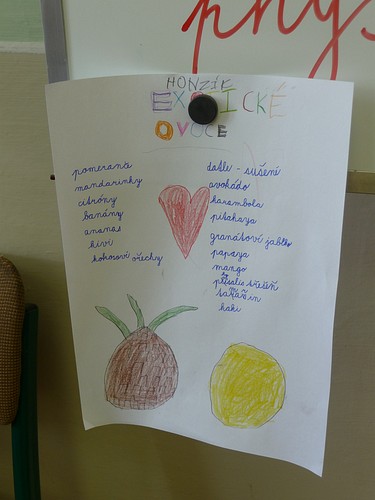 phy
HONZÍK
EXOTICKÉ
OVOCE
pomeranče
mandarinky
citróny
banány
ananas
kiwi
kokosové ořechy
datle - sušení
avokádo
karambola
pitahaya
granátoví jablko
papaya
mango
kaki